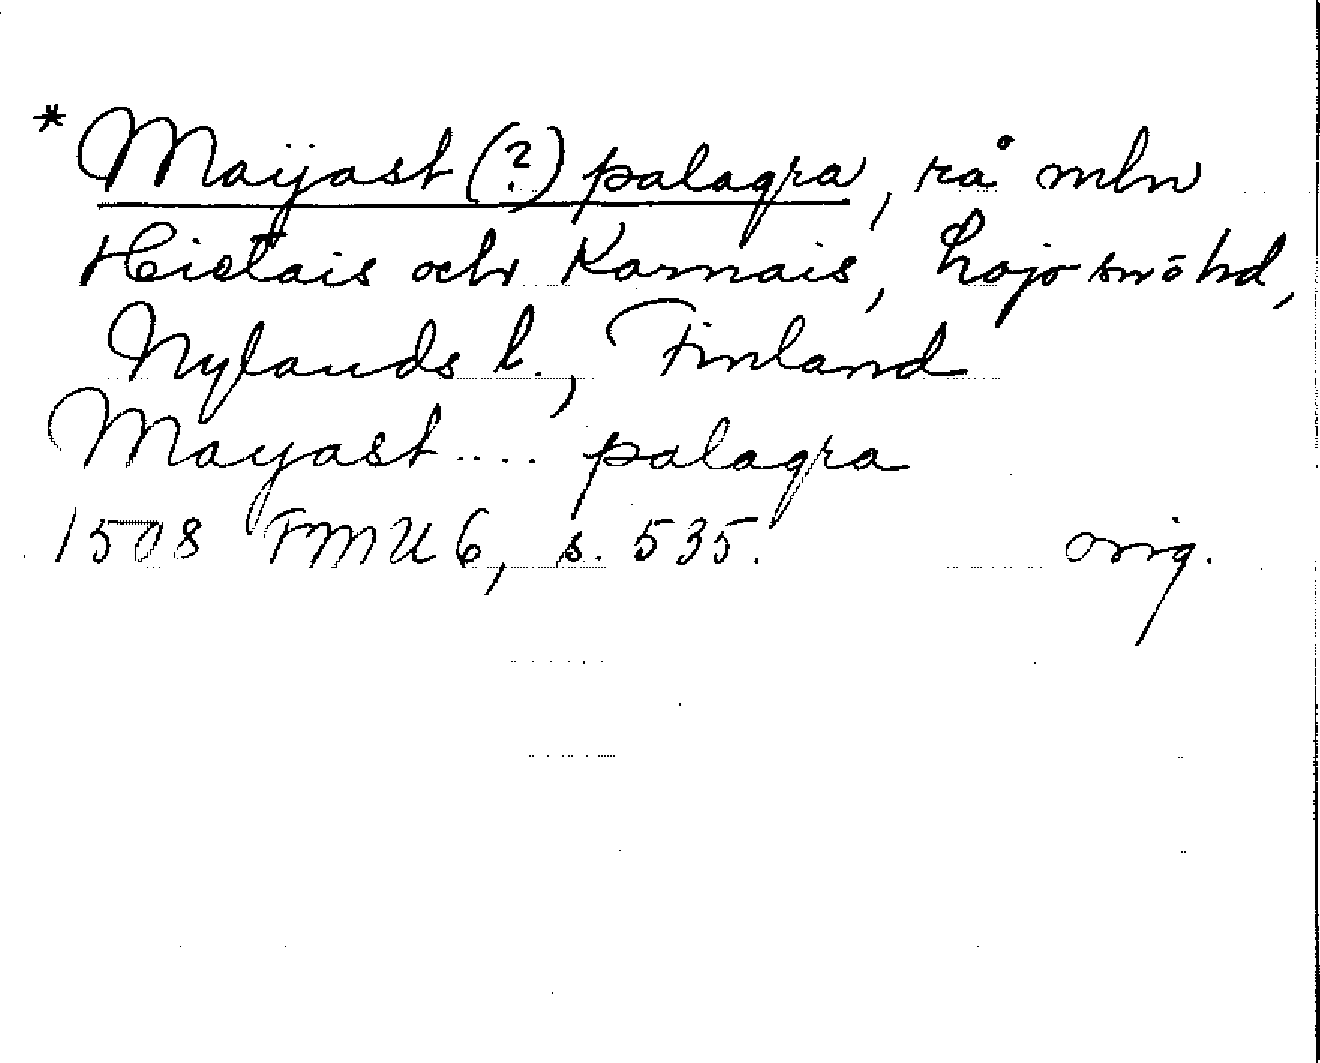 * Maÿast (?) palagra, rå mln
Hietais och Karnais, Lojo snöhd,
Nylands l., Finland
Mayast .... palagra
1508 FMU 6, s. 535. orig.